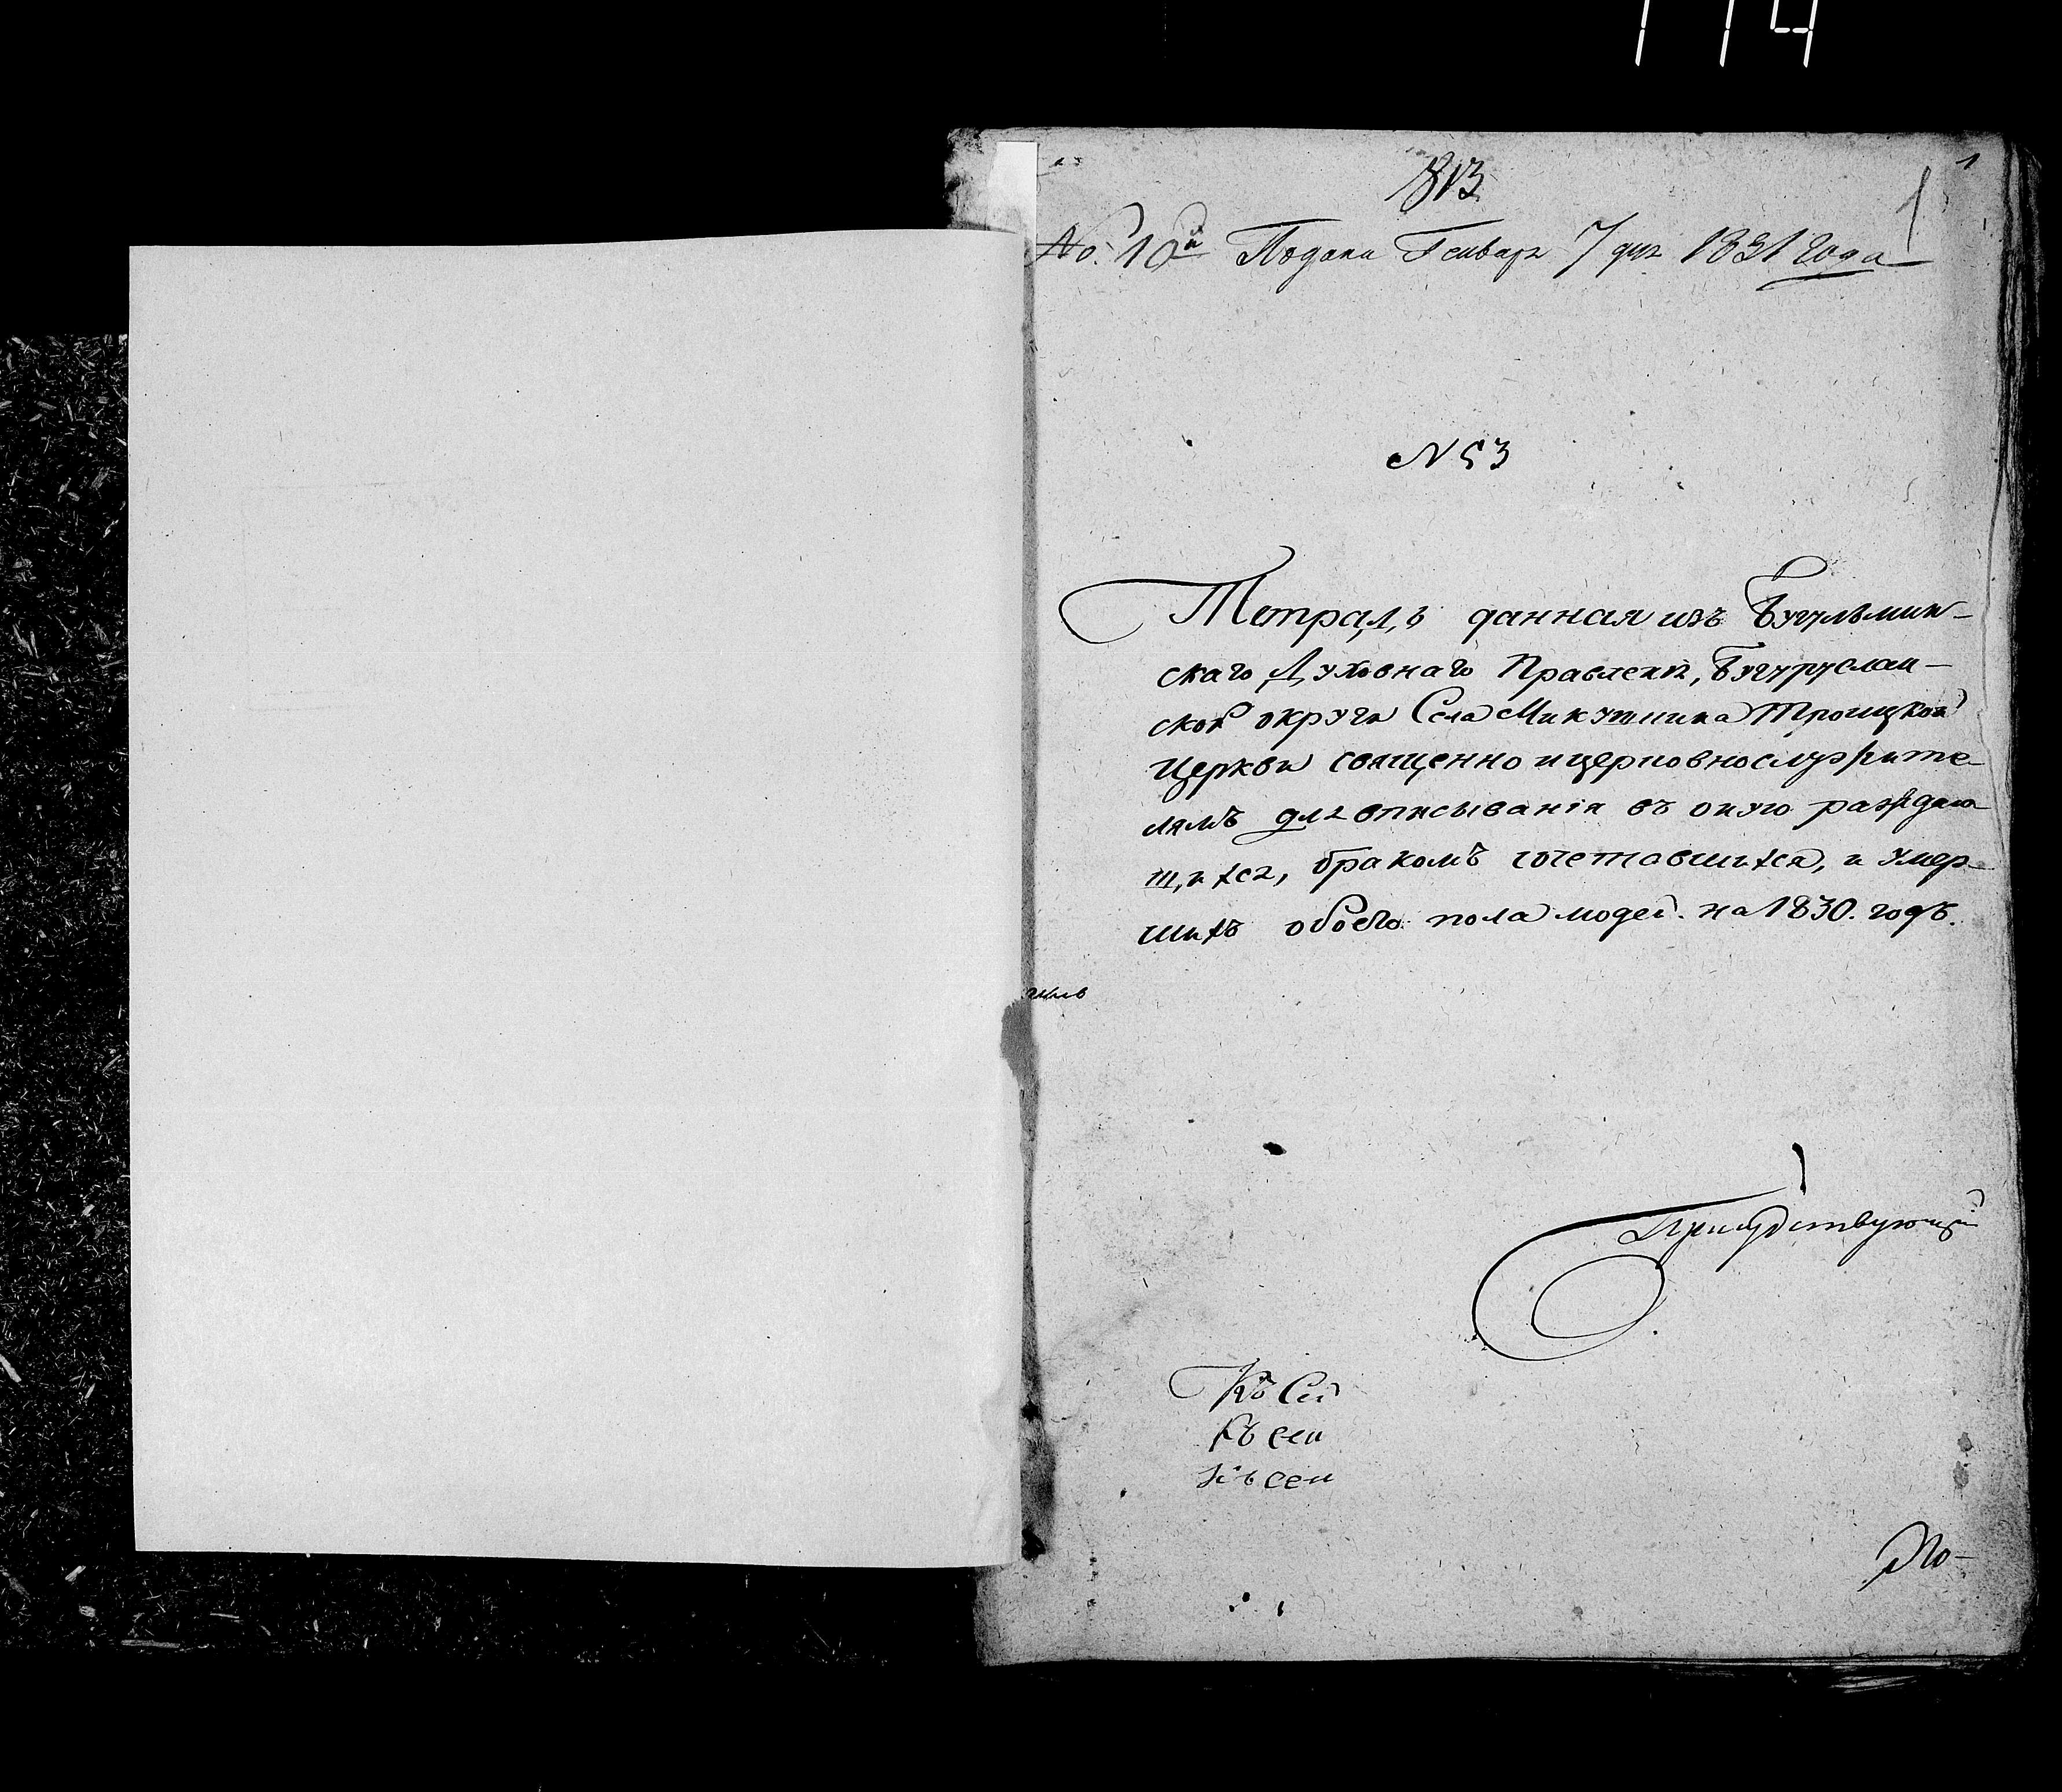 114
1
813
1
No. 10й Подана Генваря 7 дня 1831 года
N 53
Тетрадь данная изъ Бугульмин-
скаго Духовнаго Правленія, Бугуруслан-
ской округи Села Микушкина Троицкой
Церкви священно и церковнослужите-
лямъ для вписыванія въ оную раждаю-
щихся, бракомъ сочетавшихся, и умер-
шихъ обоего пола людей. на 1830. годъ.
Присудствующій
Къ Сей
Къ сей
Къ сей
По-